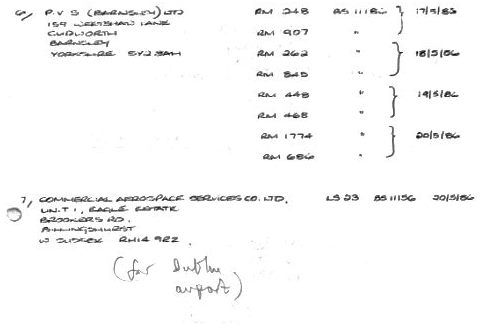 6/ P.V.S (BARNSLEY) LTD RM 248 BS 11186 } 17/5/86
159 WEETSHAW LANE
CUDWORTH RM 907 "
BARNSLEY RM 262 " } 18/5/86
YORKSHIRE
RM 845 "
RM 448 " } 19/5/86
RM 468 "
RM 1774 " } 20/5/86
RM 686 "
7, COMMERCIAL AEROSPACE SERVICES CO. LTD. LS 23 BS 11156 20/5/86
UNIT 1, EAGLE ESTATE
BROOKERS RD.
BILLINGSHURST
W SUSSEX RH14 9RZ.
(for Dublin
airport)